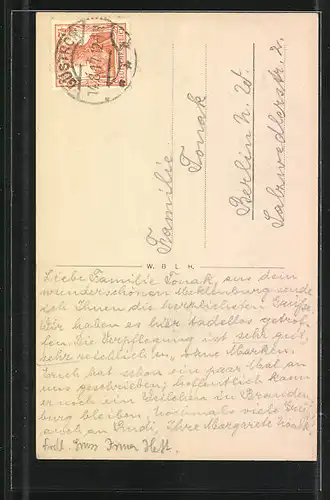 GÜSTROW
Familie
Tonak
Berlin N. W.
Salzwedlerstr. 2.
W. B. L. H.
Liebe Familie Tonak, aus dem
wunderschönen Mecklenburg sende
ich Ihnen die herzlichsten Grüße.
Wir haben es hier tadellos getrof-
fen. Die Verpflegung ist sehr gut,
sehr reichlich u. „ohne Marken."
hat schon ein paar Mal an
uns geschrieben; hoffentlich kann
er noch ein Weilchen in Branden-
burg bleiben. nochmals viele Grüße
auch an Rudi, Ihre Margarete
Herzl. Gruss